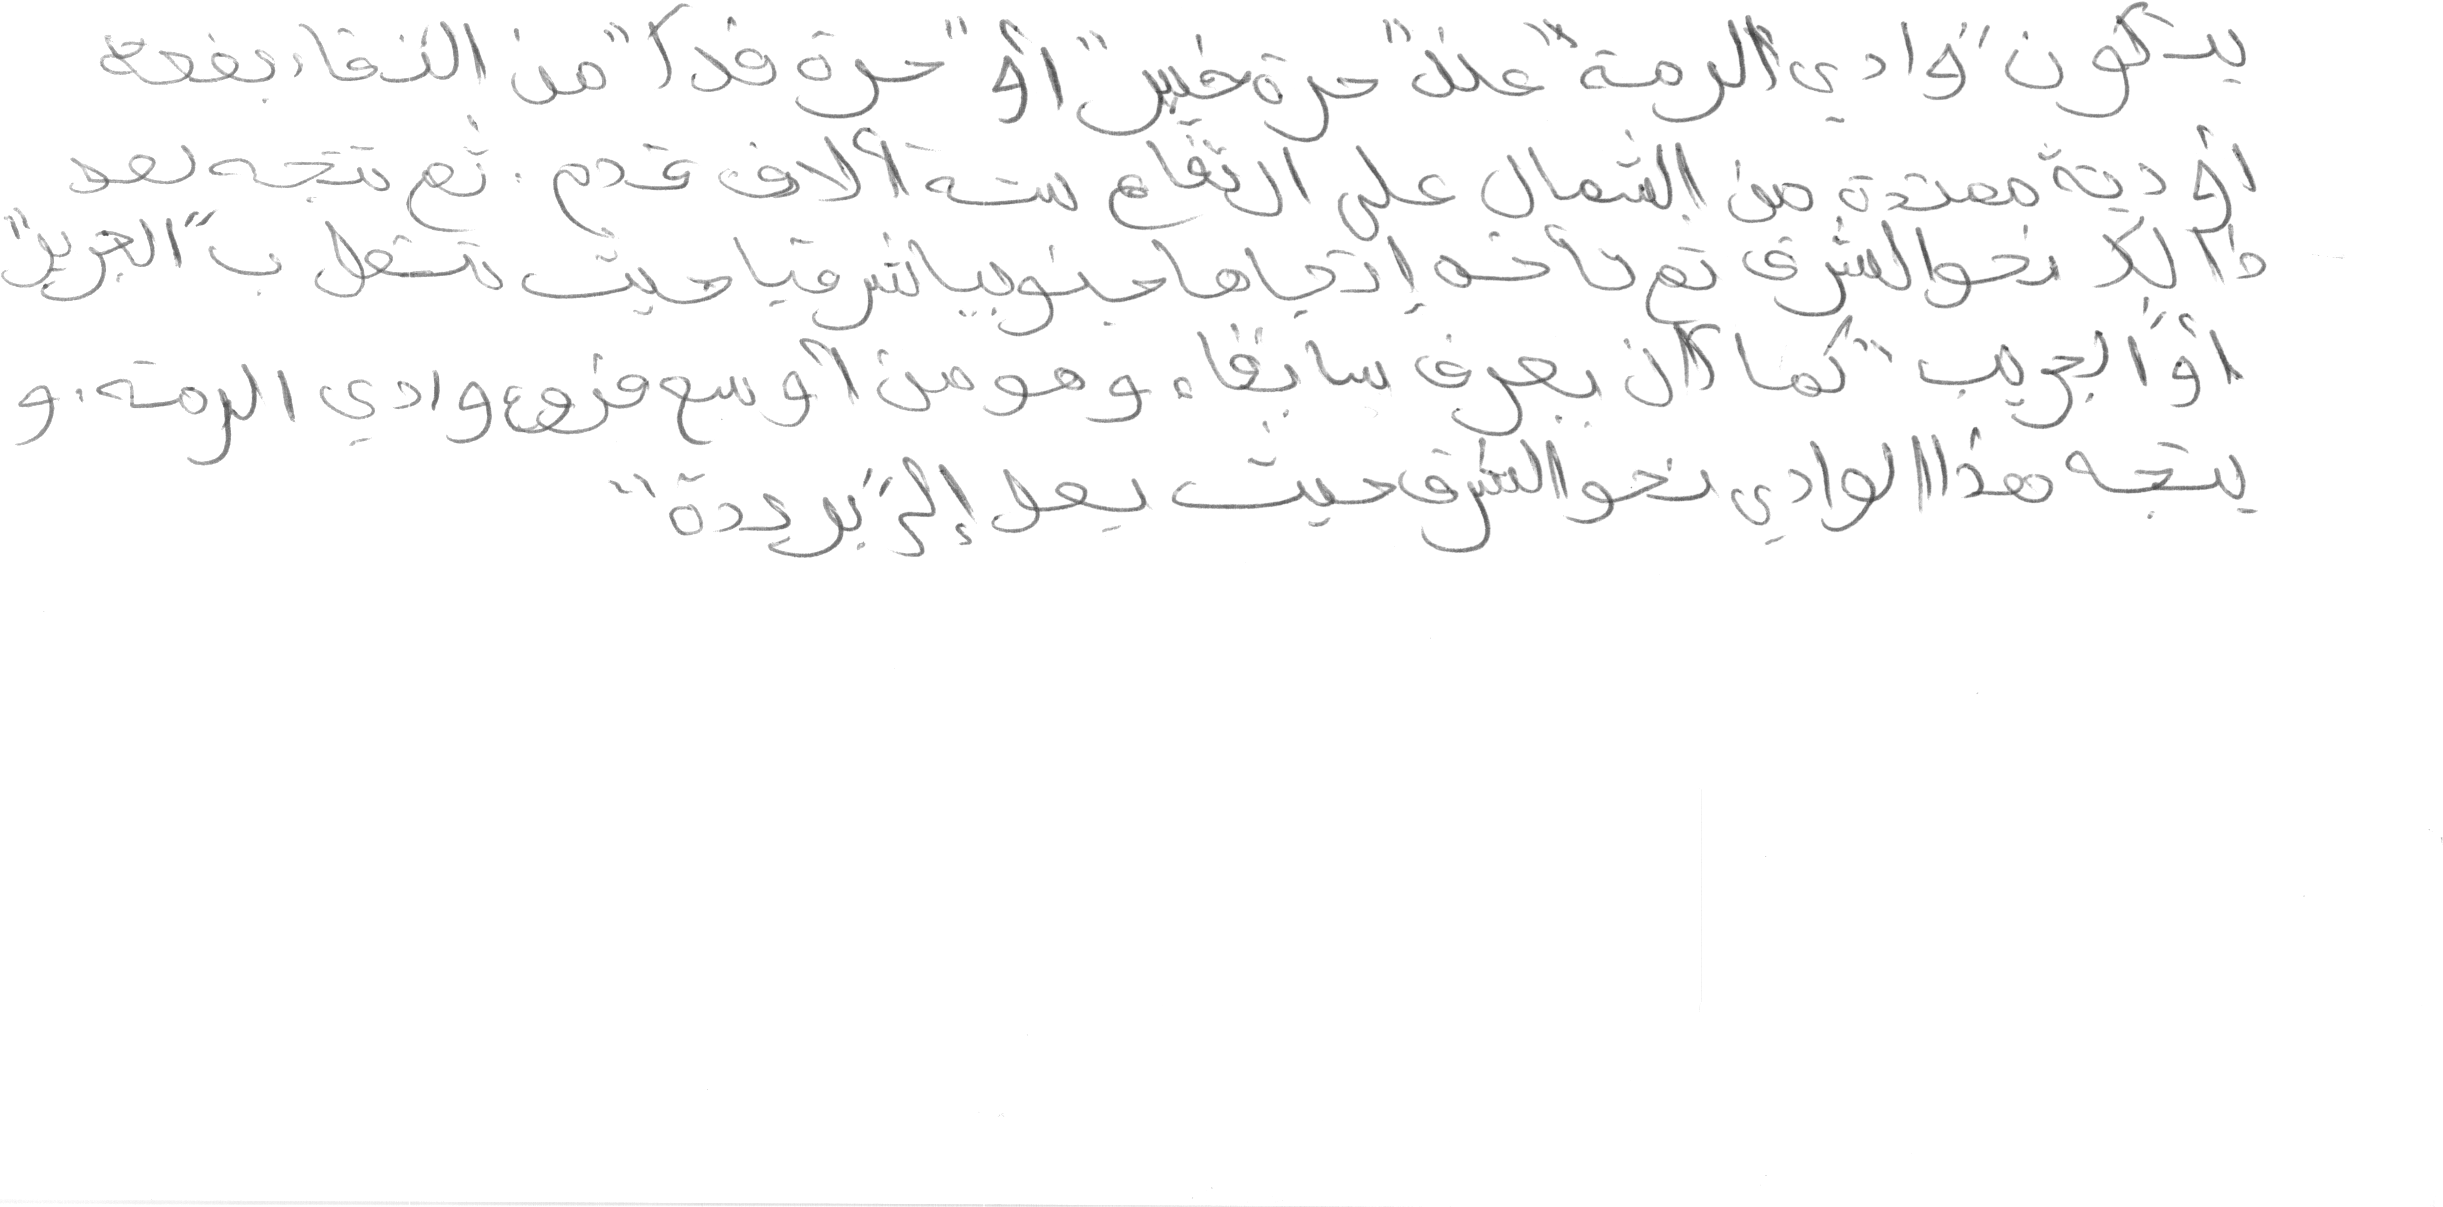 يتكون "وادي الرمة" عند "حرة خيبر" أو "حرة فدك" من التقاء بضعة
أودية ممتدة من الشمال على ارتفاع ستة آلاف قدم. ثم تتجه بعد
ذالك نحو الشرق ثم تأخذ إتجاها جنوبيا شرقيا حيث تتصل ب "الجرير"
أو "الجريب" كما كان يعرف سابقا، وهو من أوسع فروع وادي الرمة، و
يتجه هذا الوادي نحو الشرق حيث يصل إلى "بريدة"